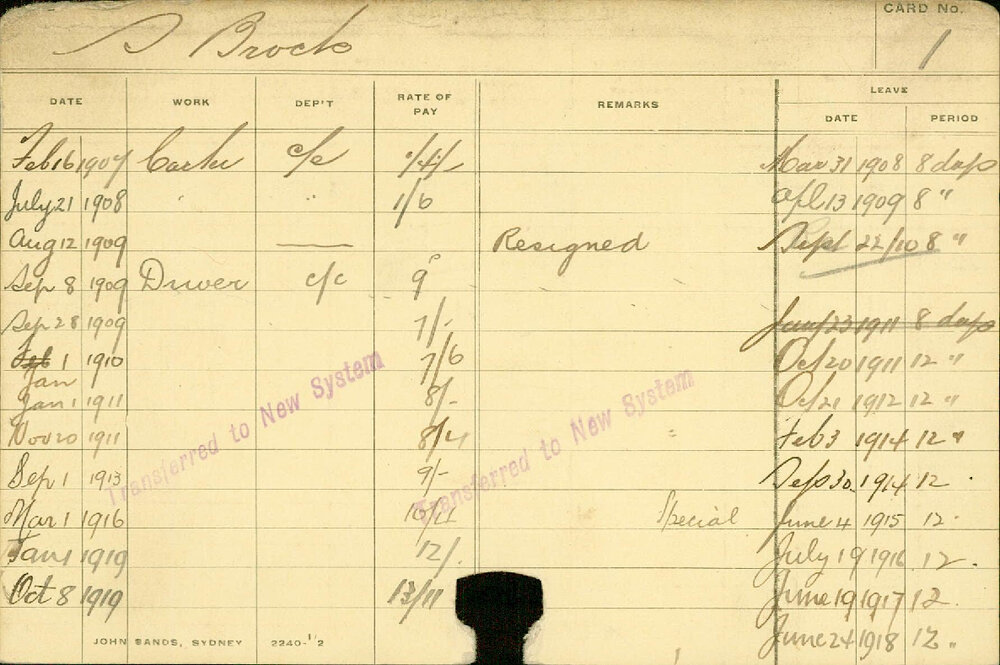 CARD No.
S Brock 1
DATE WORK DEP'T RATE OF PAY REMARKS LEAVE
DATE PERIOD
Feb 16 1907 Carter c/c /4/- Mar 31 1908 8 days
July 21 1908 " " 1/6 Apl 13 1909 8 "
Aug 12 1909 — Resigned Sept 22/10 8 "
Sep 8 1909 Driver c/c 9
Sep 28 1909 7/- Jany 23 1911 8 days
Feb 1 1910 7/6 Oct 20 1911 12 "
Jan
Jan 1 1911 8/- Oct 21 1912 12 "
Nov 20 1911 8/4 Feb 3 1914 12 "
Sep 1 1913 9/- Sep 30 1914 12 "
Mar 1 1916 10/4 Special June 4 1915 12 "
Jan 1 1919 12/. July 19 1916 12 .
Oct 8 1919 13/11 June 19 1917 12 .
June 24 1918 12 "
Transferred to New System
Transferred to New System
JOHN SANDS, SYDNEY 2240-1/2